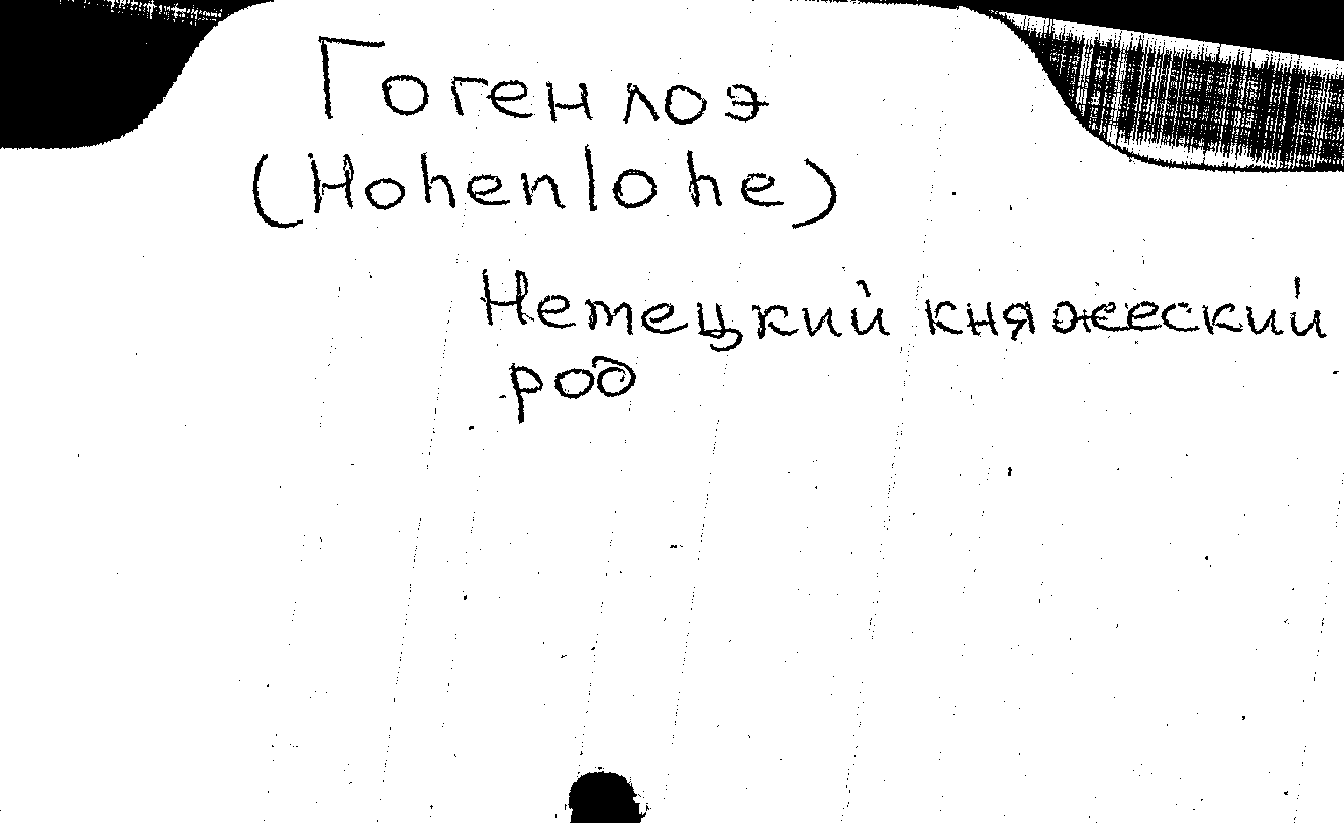 Гогенлоэ
(Hohenlohe)
Немецкий княжеский
род